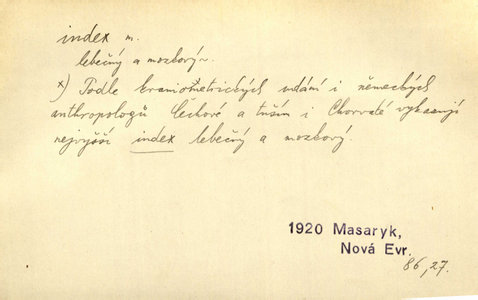 index m.
lebečný a mozkový~.
×) Podle kraniometrických udání i německých
anthropologů Čechové a tuším i Chorvaté vykazují
nejvyšší index lebečný a mozkový.
1920 Masaryk,
Nová Evr.
86,27.